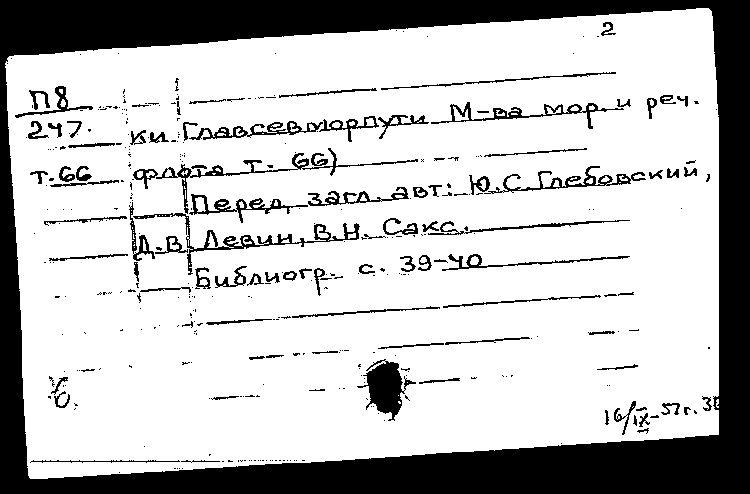 2
П8
247.
т.66
ки Главсевморпути М-ва мор. и реч.
флота т. 66)
Перед загл. авт: Ю.С. Глебовский,
Д.В. Левин, В.Н. Сакс.
Библиогр. с. 39-40
16/IX-57г.